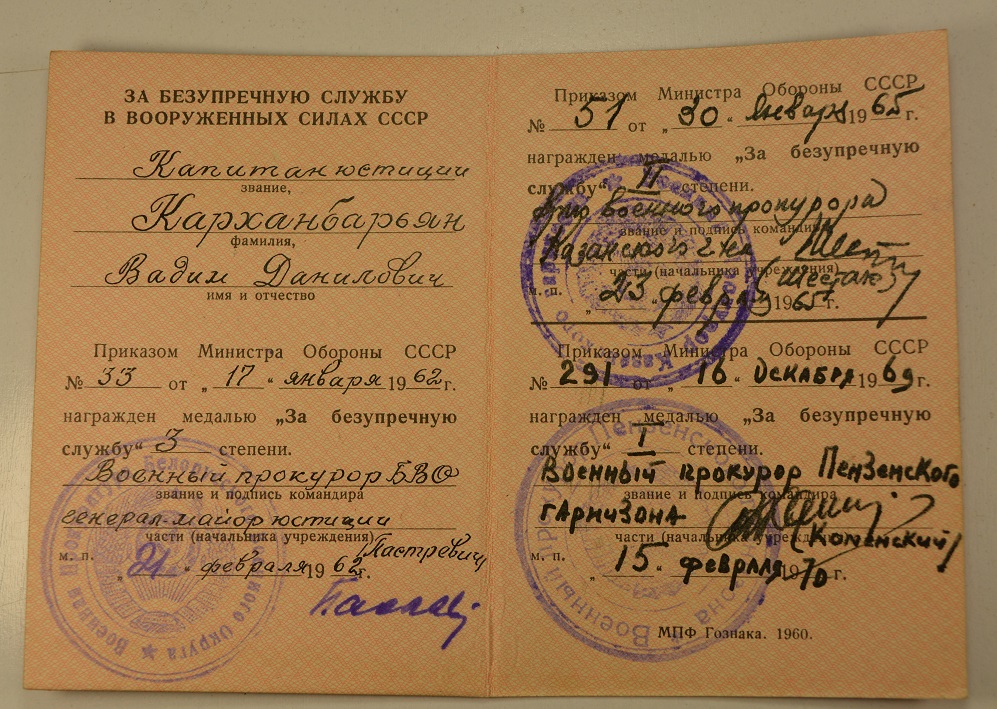 ЗА БЕЗУПРЕЧНУЮ СЛУЖБУ
В ВООРУЖЕННЫХ СИЛАХ СССР
Капитан юстиции
звание,
Карханбарьян
фамилия,
Вадим Данилович
имя и отчество
Приказом Министра Обороны СССР
№ 33 от „17“ января 1962г.
награжден медалью „За безупречную
службу“ 3 степени.
Военный прокурор БВО
звание и подпись командира
генерал-майор юстиции
части (начальника учреждения)
Пастревич
м. п. „21“ февраля 1962г.
Приказом Министра Обороны СССР
№ 51 от „30“ января 1965г.
награжден медалью „За безупречную
службу“ II степени.
военного прокурора
звание и подпись командира
Казанского г-на
части (начальника учреждения)
м. п. „23“ февраля 1965г.
Приказом Министра Обороны СССР
№ 291 от „16“ декабря 1969г.
награжден медалью „За безупречную
службу“ I степени.
Военный прокурор Пензенского
звание и подпись командира
гарнизона
(Каменский)
части (начальника учреждения)
м. п. „15“ февраля 1970г.
МПФ Гознака. 1960.